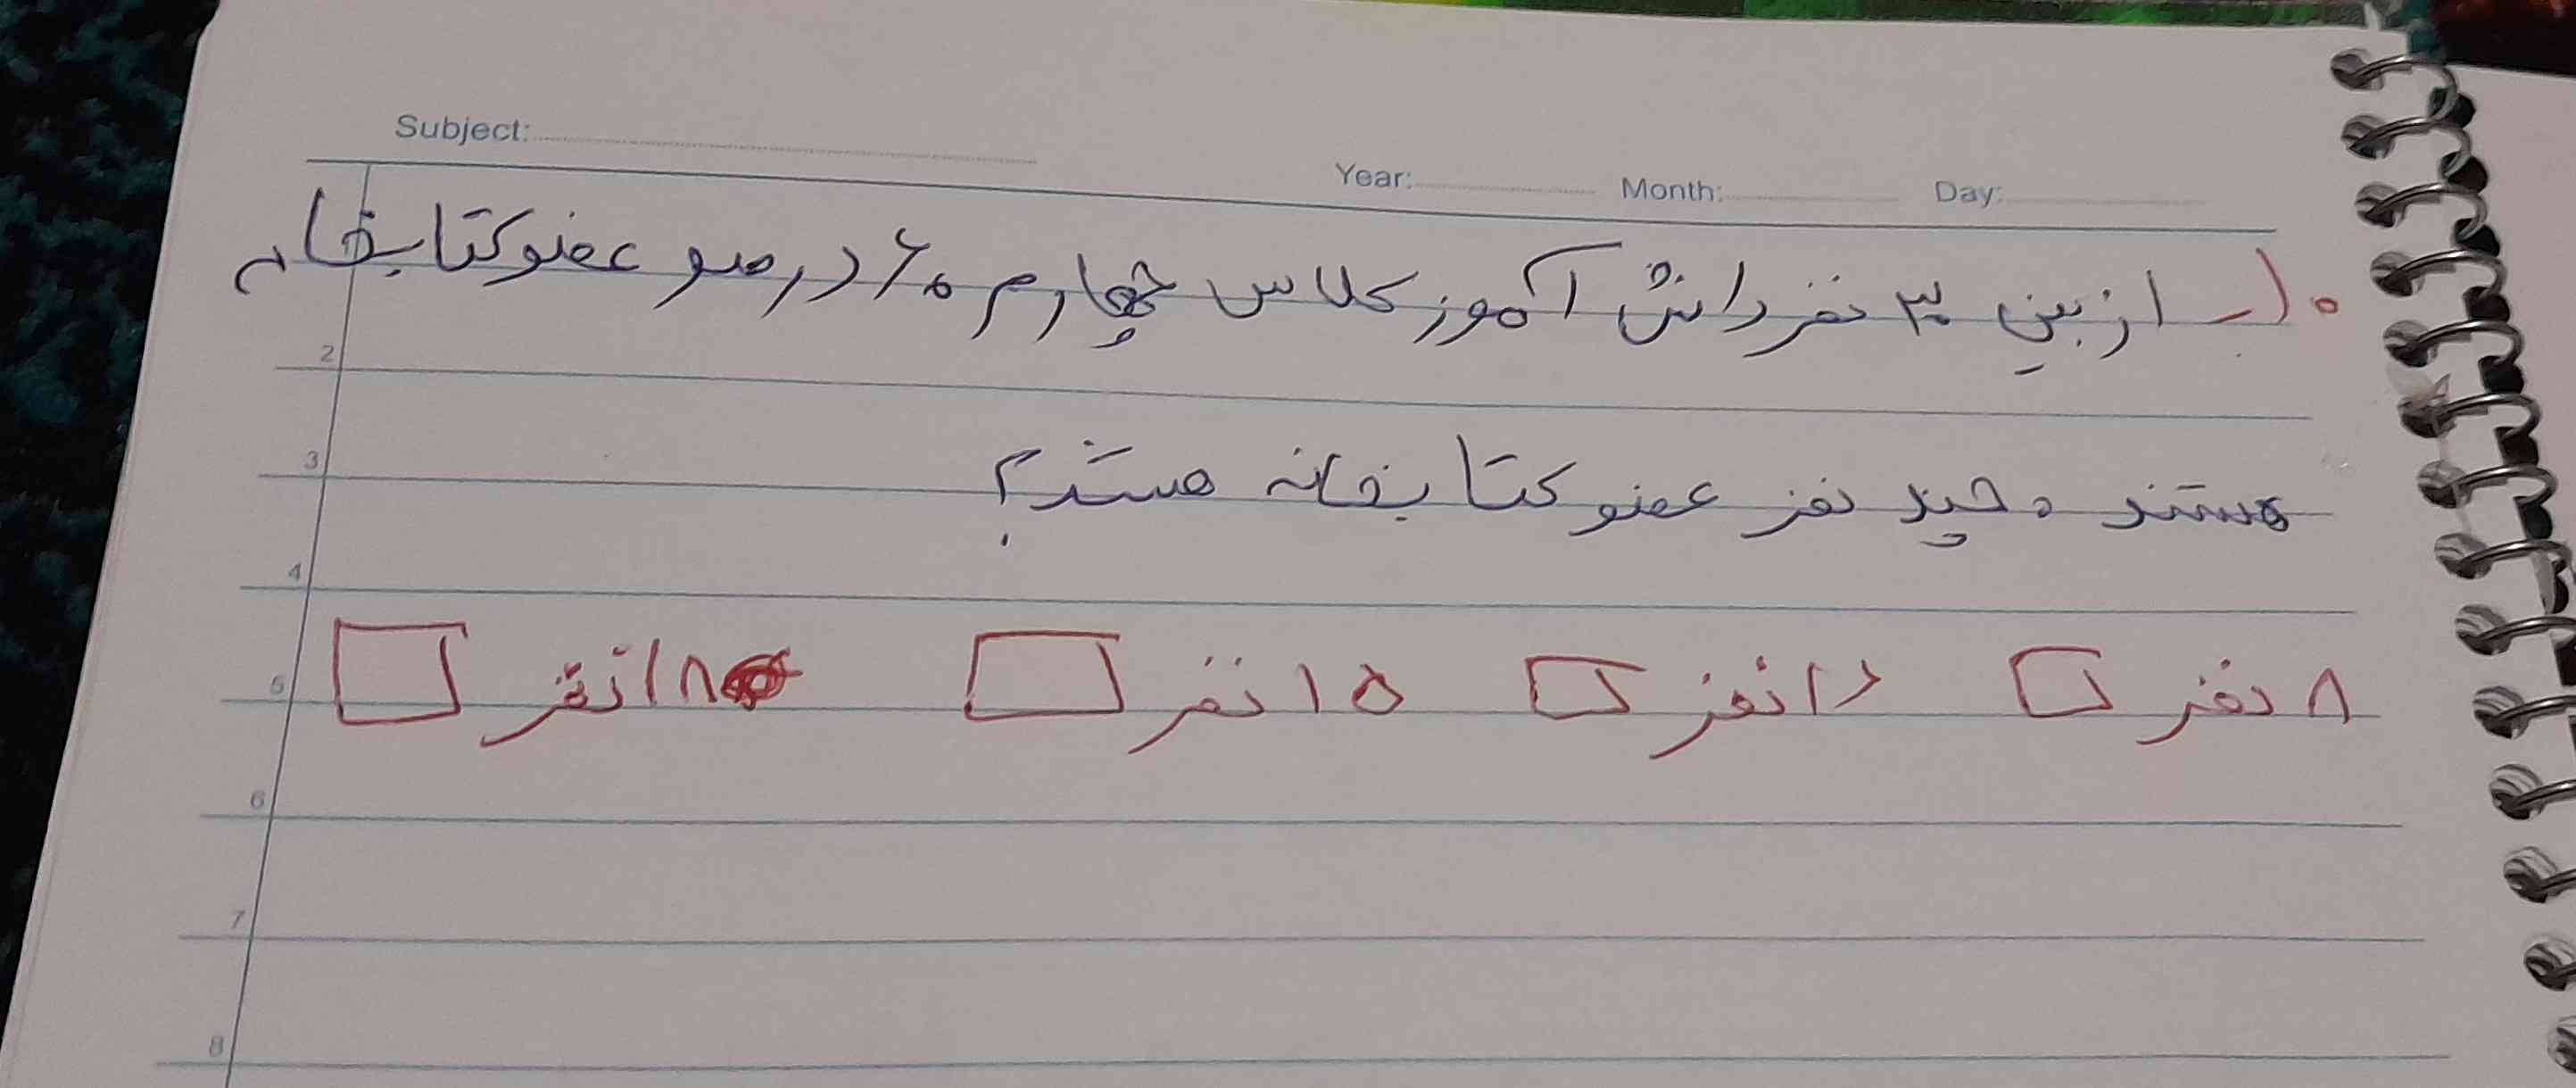 Subject:
Year: Month: Day:
۱۰ـ از بین ۳۰ نفر دانش آموز کلاس چهارم ۶۰ درصد عضو کتابخانه
هستند. چند نفر عضو کتابخانه هستند؟
۸ نفر ۱۶ نفر ۱۵ نفر ۱۸ نفر
2
3
4
5
6
7
8